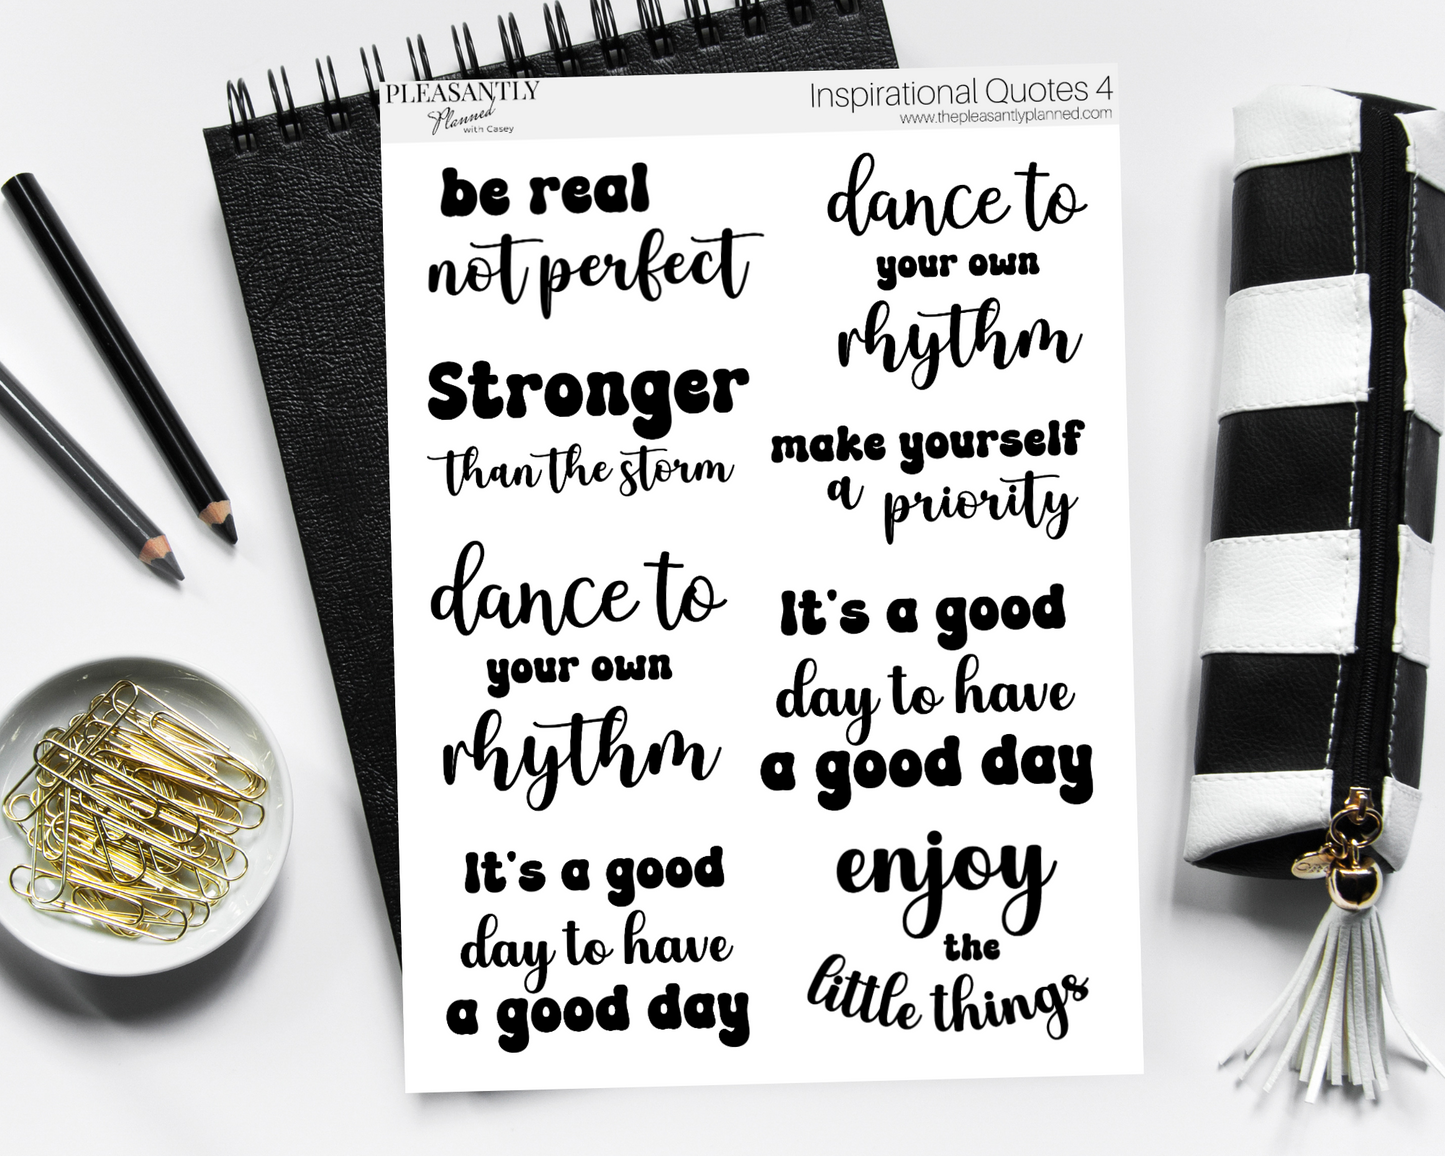 PLEASANTLY
Planned
with Casey
Inspirational Quotes 4
www.thepleasantlyplanned.com
be real
not perfect
dance to
your own
rhythm
Stronger
than the storm
make yourself
a priority
dance to
your own
rhythm
It's a good
day to have
a good day
It's a good
day to have
a good day
enjoy
the
little things